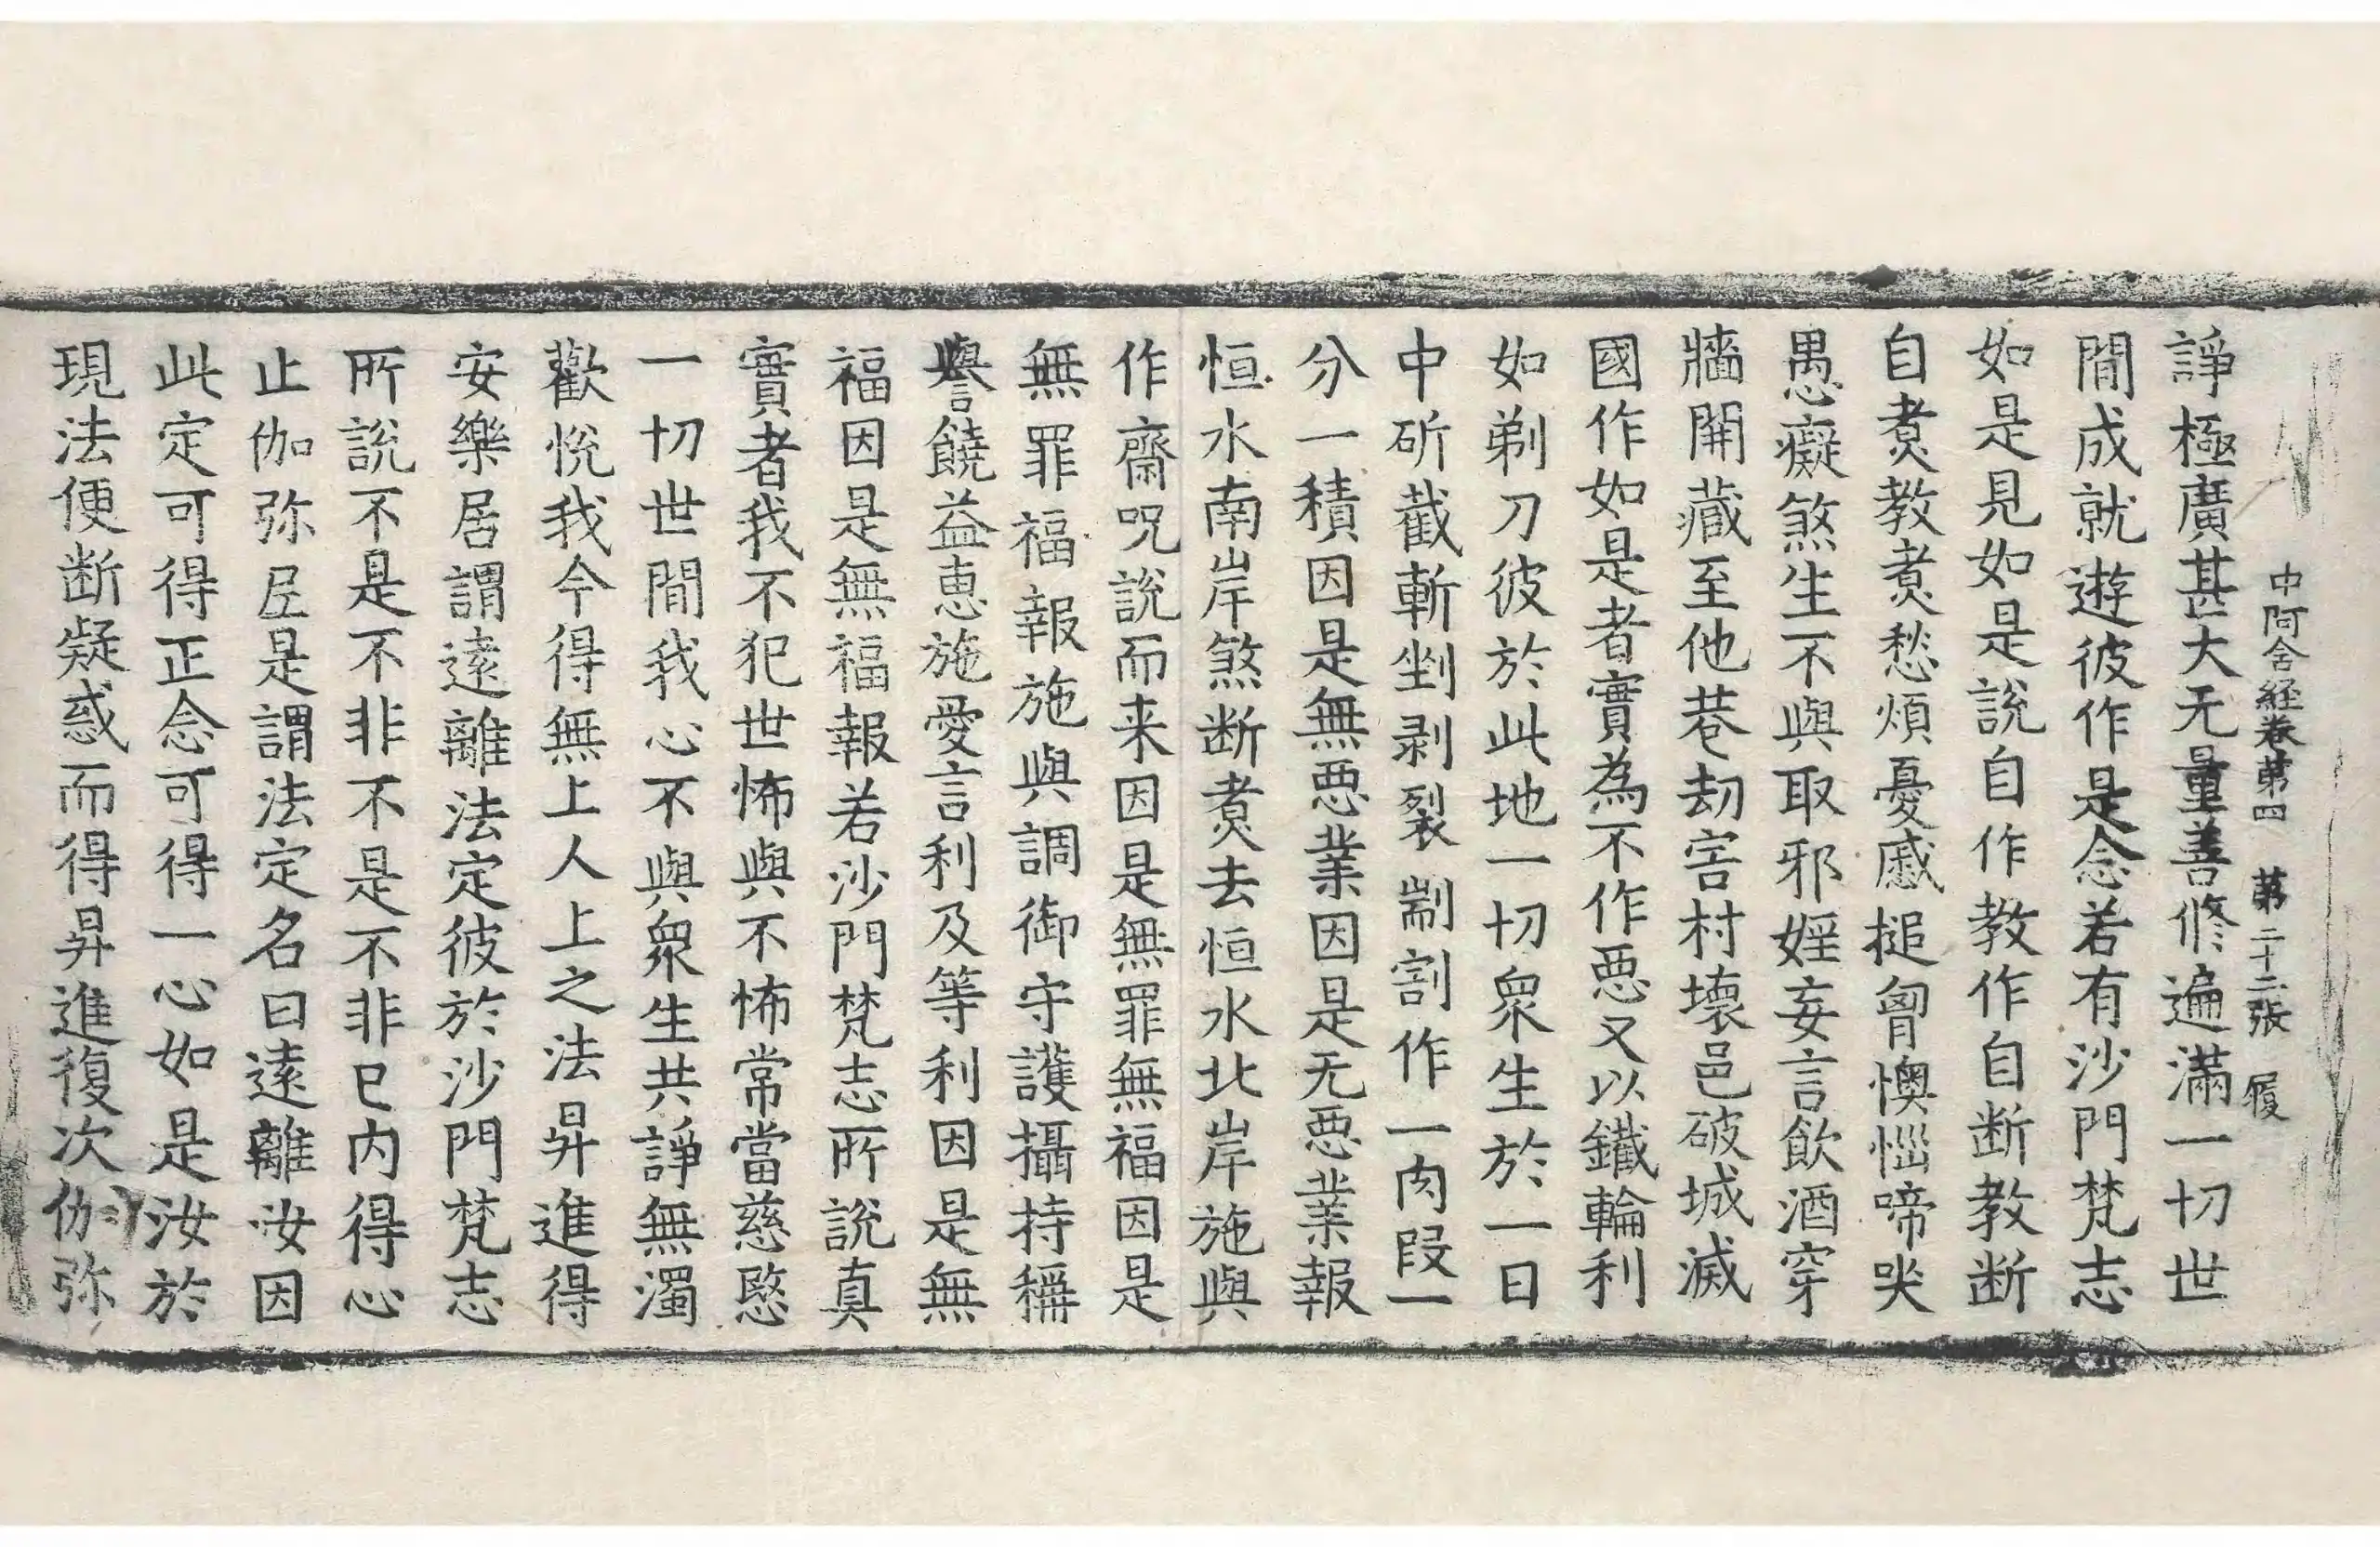 中阿含経卷苐四 苐二十二張 履
諍極廣甚大无量善修遍滿一切世
間成就遊彼作是念若有沙門梵志
如是見如是說自作教作自断教断
自煑教煑愁煩憂慼搥胷懊惱啼哭
愚癡煞生不與取邪婬妄言飲酒穿
牆開藏至他巷劫害村壞邑破城滅
國作如是者實為不作惡又以鐵輪利
如剃刀彼於此地一切衆生於一日
中斫截斬剉剥裂剬割作一肉段一
分一積因是無惡業因是无惡業報
恒水南岸煞断煑去恒水北岸施與
作齋呪說而来因是無罪無福因是
無罪福報施與調御守護攝持稱
譽饒益惠施愛言利及等利因是無
福因是無福報若沙門梵志所說真
實者我不犯世怖與不怖常當慈愍
一切世間我心不與衆生共諍無濁
歡悅我今得無上人上之法昇進得
安樂居謂遠離法定彼於沙門梵志
所說不是不非不是不非已內得心
止伽弥尼是謂法定名曰遠離汝因
此定可得正念可得一心如是汝於
現法便断疑惑而得昇進復次伽弥